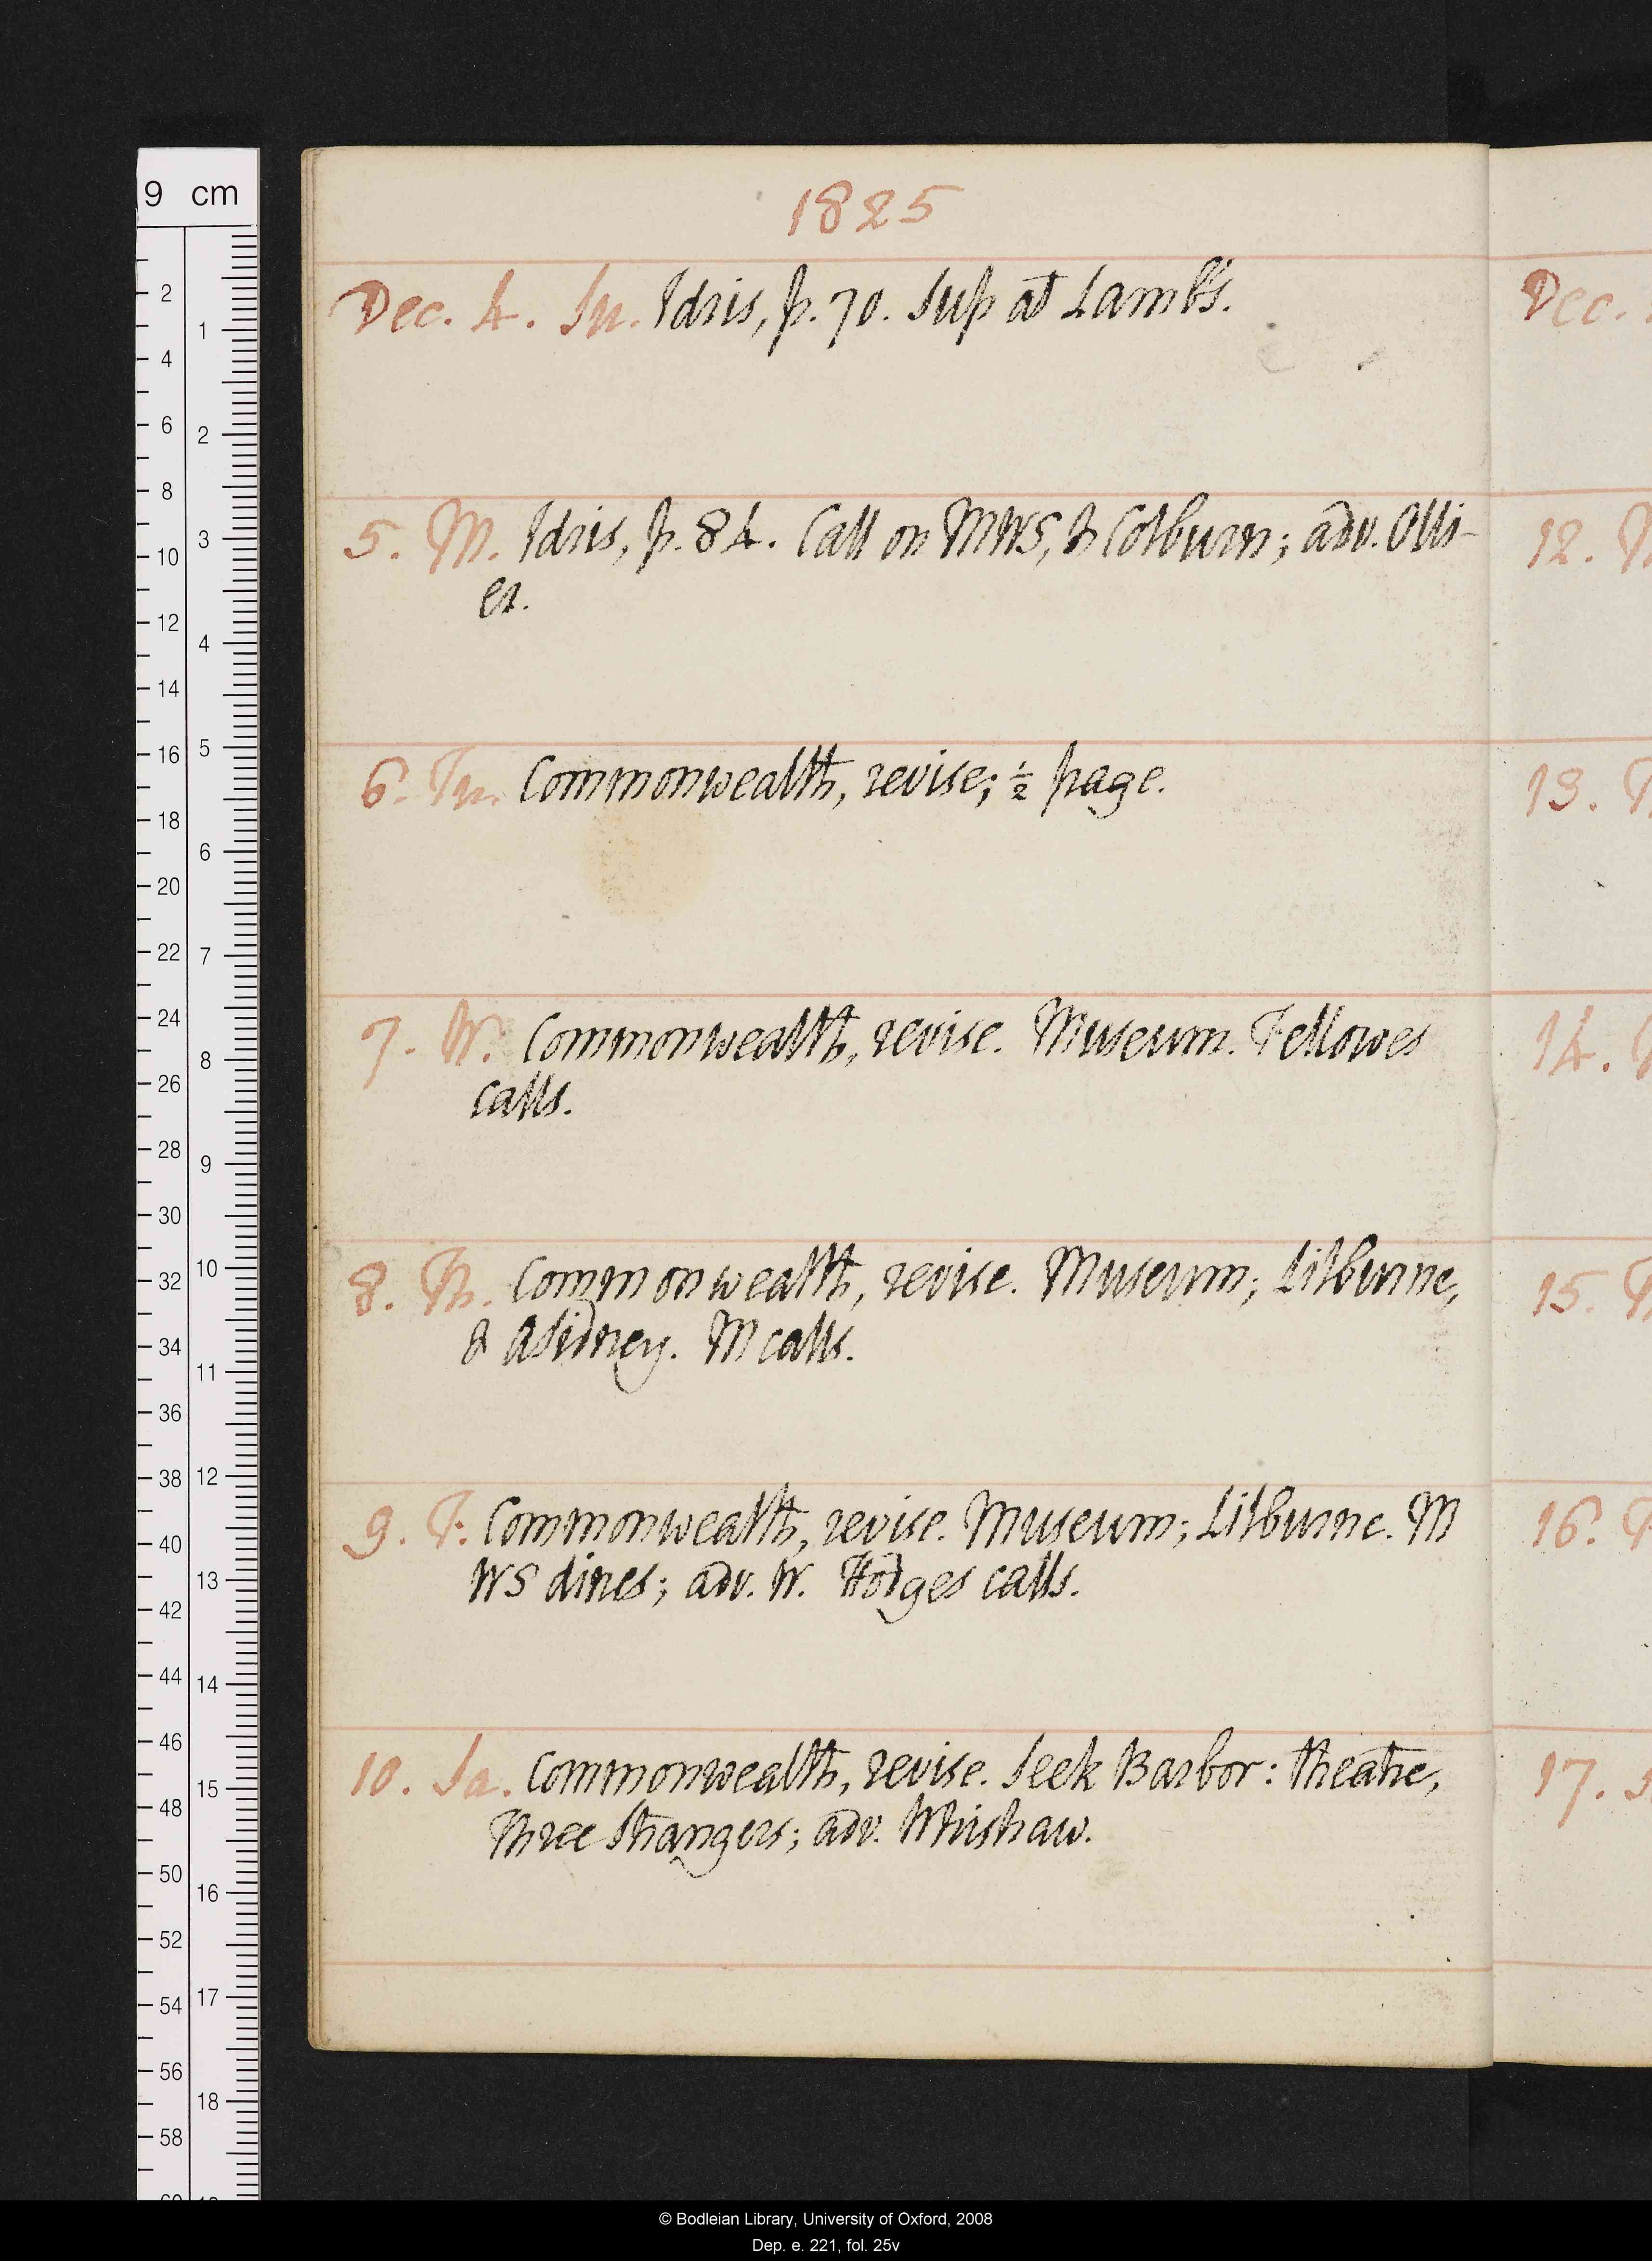 9 cm
1825
Dec. 4. Su. Idris, p. 70. Sup at Lamb's.
5. M. Idris, p. 84. Call on MWS, & Colburn; adv. Olli-
er.
6. Tu. Commonwealth, revise; ½ page.
7. W. Commonwealth, revise. Museum. Fellowes
calls.
8. Th. Commonwealth, revise. Museum; Lilburne,
& A Sidney. M calls.
9. F. Commonwealth, revise. Museum; Lilburne. M
WS dines; adv. W. Hodges calls.
10. Sa. Commonwealth, revise. Seek Barbor: theatre,
Three Strangers; adv. Whishaw.
Dec.
12.
13.
14.
15.
16.
17.
2
4
6
8
10
12
14
16
18
20
22
24
26
28
30
32
34
36
38
40
42
44
46
48
50
52
54
56
58
1
2
3
4
5
6
7
8
9
10
11
12
13
14
15
16
17
18
© Bodleian Library, University of Oxford, 2008
Dep. e. 221, fol. 25v